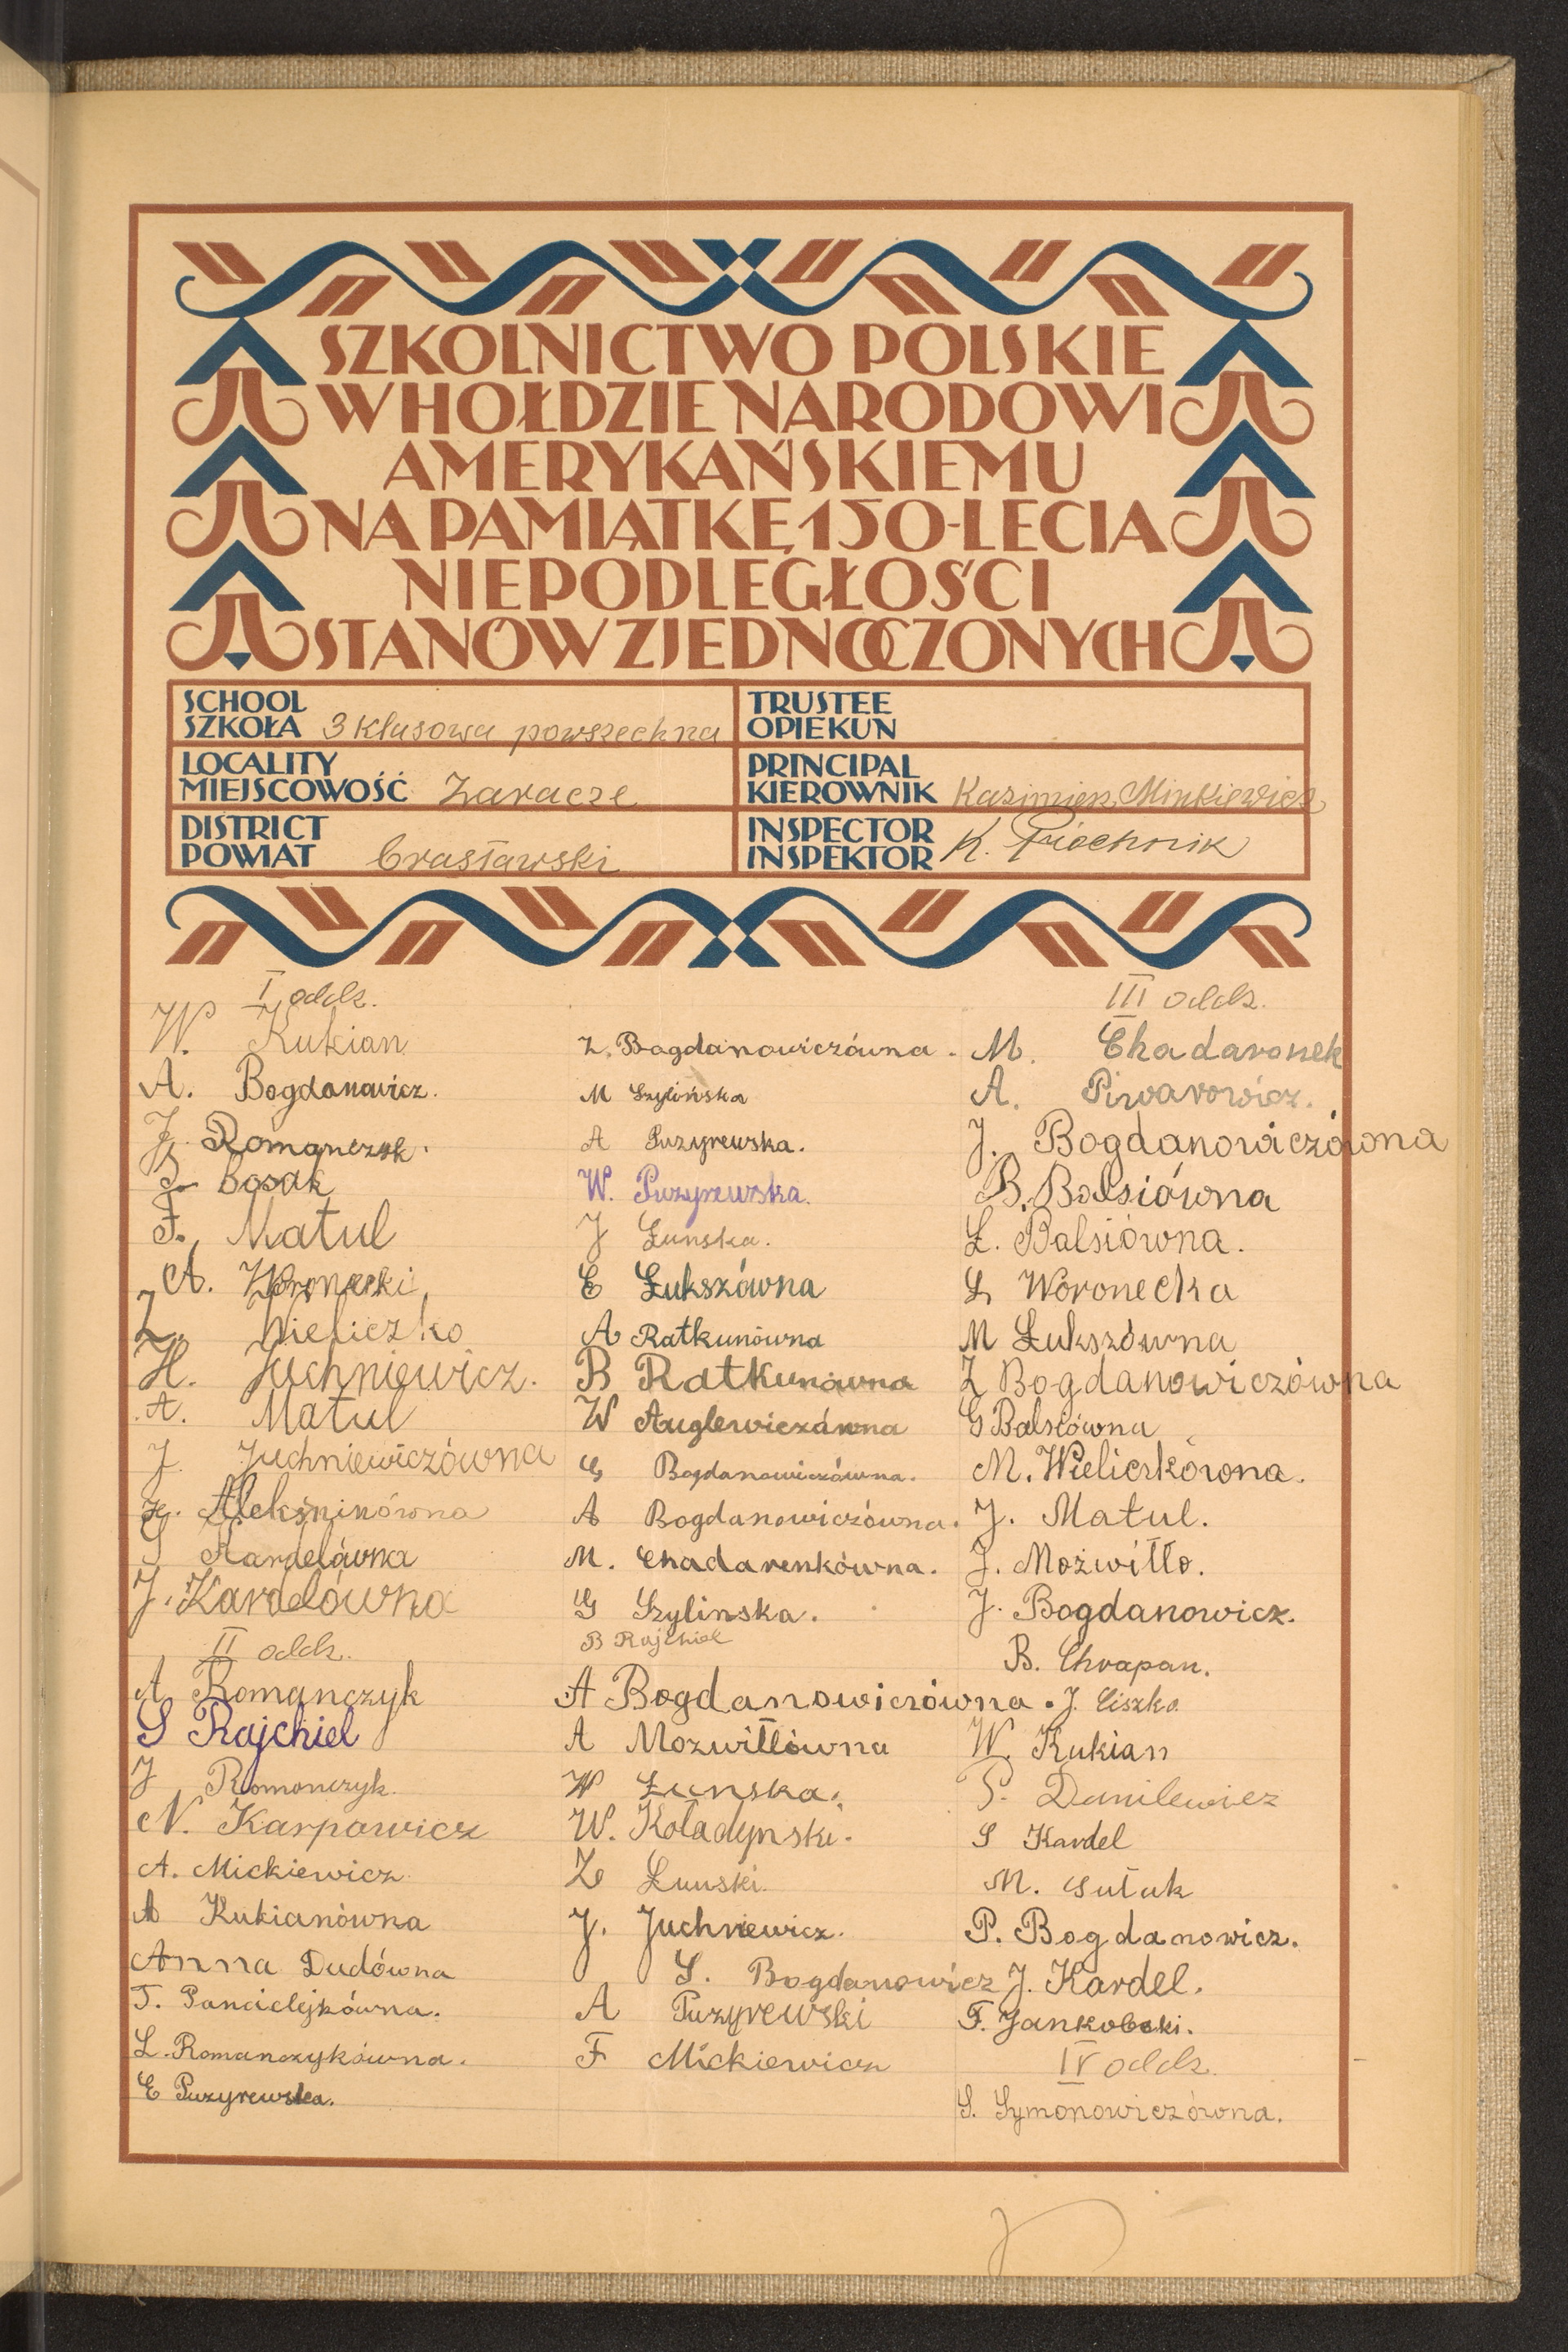 SZKOLNICTWO POLSKIE
W HOŁDZIE NARODOWI
AMERYKAŃSKIEMU
NA PAMIĄTKĘ 150-LECIA
NIEPODLEGŁOŚCI
STANÓW ZJEDNOCZONYCH
SCHOOL
SZKOŁA 3 klasowa powszechna
TRUSTEE
OPIEKUN
LOCALITY
MIEJSCOWOŚĆ Zaracze
PRINCIPAL
KIEROWNIK Kazimierz Minkiewicz
DISTRICT
POWIAT brasławski
INSPECTOR
INSPEKTOR K. Piechnik
I oddz.
W. Kukian
A. Bogdanowicz.
J. Romanczyk.
Bosak
F. Matul
A. Woronecki
Z. Wieliczko
H. Juchniewicz.
A. Matul
J. Juchniewiczówna
Aleksninówna
S Kardelówna
J. Kardelówna
II oddz.
A Romanczyk
S Rajchiel
J Romonczyk.
N. Karpowicz
A. Mickiewicz
A Kukianówna
Anna Dudówna
T. Pancielejkówna.
L. Romanczykówna.
E Puzyrewska.
Z. Bogdanowiczówna.
M Szylińska
A Puzyrewska.
W. Puzyrewska.
J Łunska.
E Łukszówna
A Ratkunówna
B Ratkunówna
W Auglewiczówna
G Bogdanowiczówna.
A Bogdanowiczówna.
M. Chadarenkówna.
G Szylinska.
B Rajchiel
A Bogdanowiczówna.
A Mozwiłłówna
W Łunska.
W. Koladynski.
Z Łunski.
J. Juchniewicz.
S. Bogdanowicz
A Puzyrewski
F Mickiewicz
III oddz.
M. Chadaronek
A. Piwarowicz.
J. Bogdanowiczówna
B. Balsiówna
Ł. Balsiówna.
L Woronecka
M Łukszówna
Z Bogdanowiczówna
G Balsiówna
M. Wieliczkówna.
J. Matul.
J. Możwiłło.
J. Bogdanowicz.
B. Chrapan.
J. Ciszko.
W. Kukian
P. Danilewicz
S Kardel
M. Gutuk
P. Bogdanowicz.
J. Kardel.
F. Jankobski.
IV oddz.
S. Symonowiczówna.